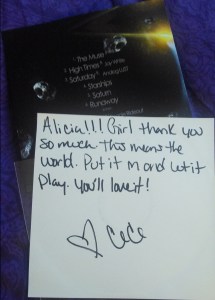 The Muse
High Times
Saturday
Starships
Saturn
Runaway
Alicia!!! Girl thank you
so much. This means the
world. Put it in and let it
play. You'll love it!
♡ CeCe